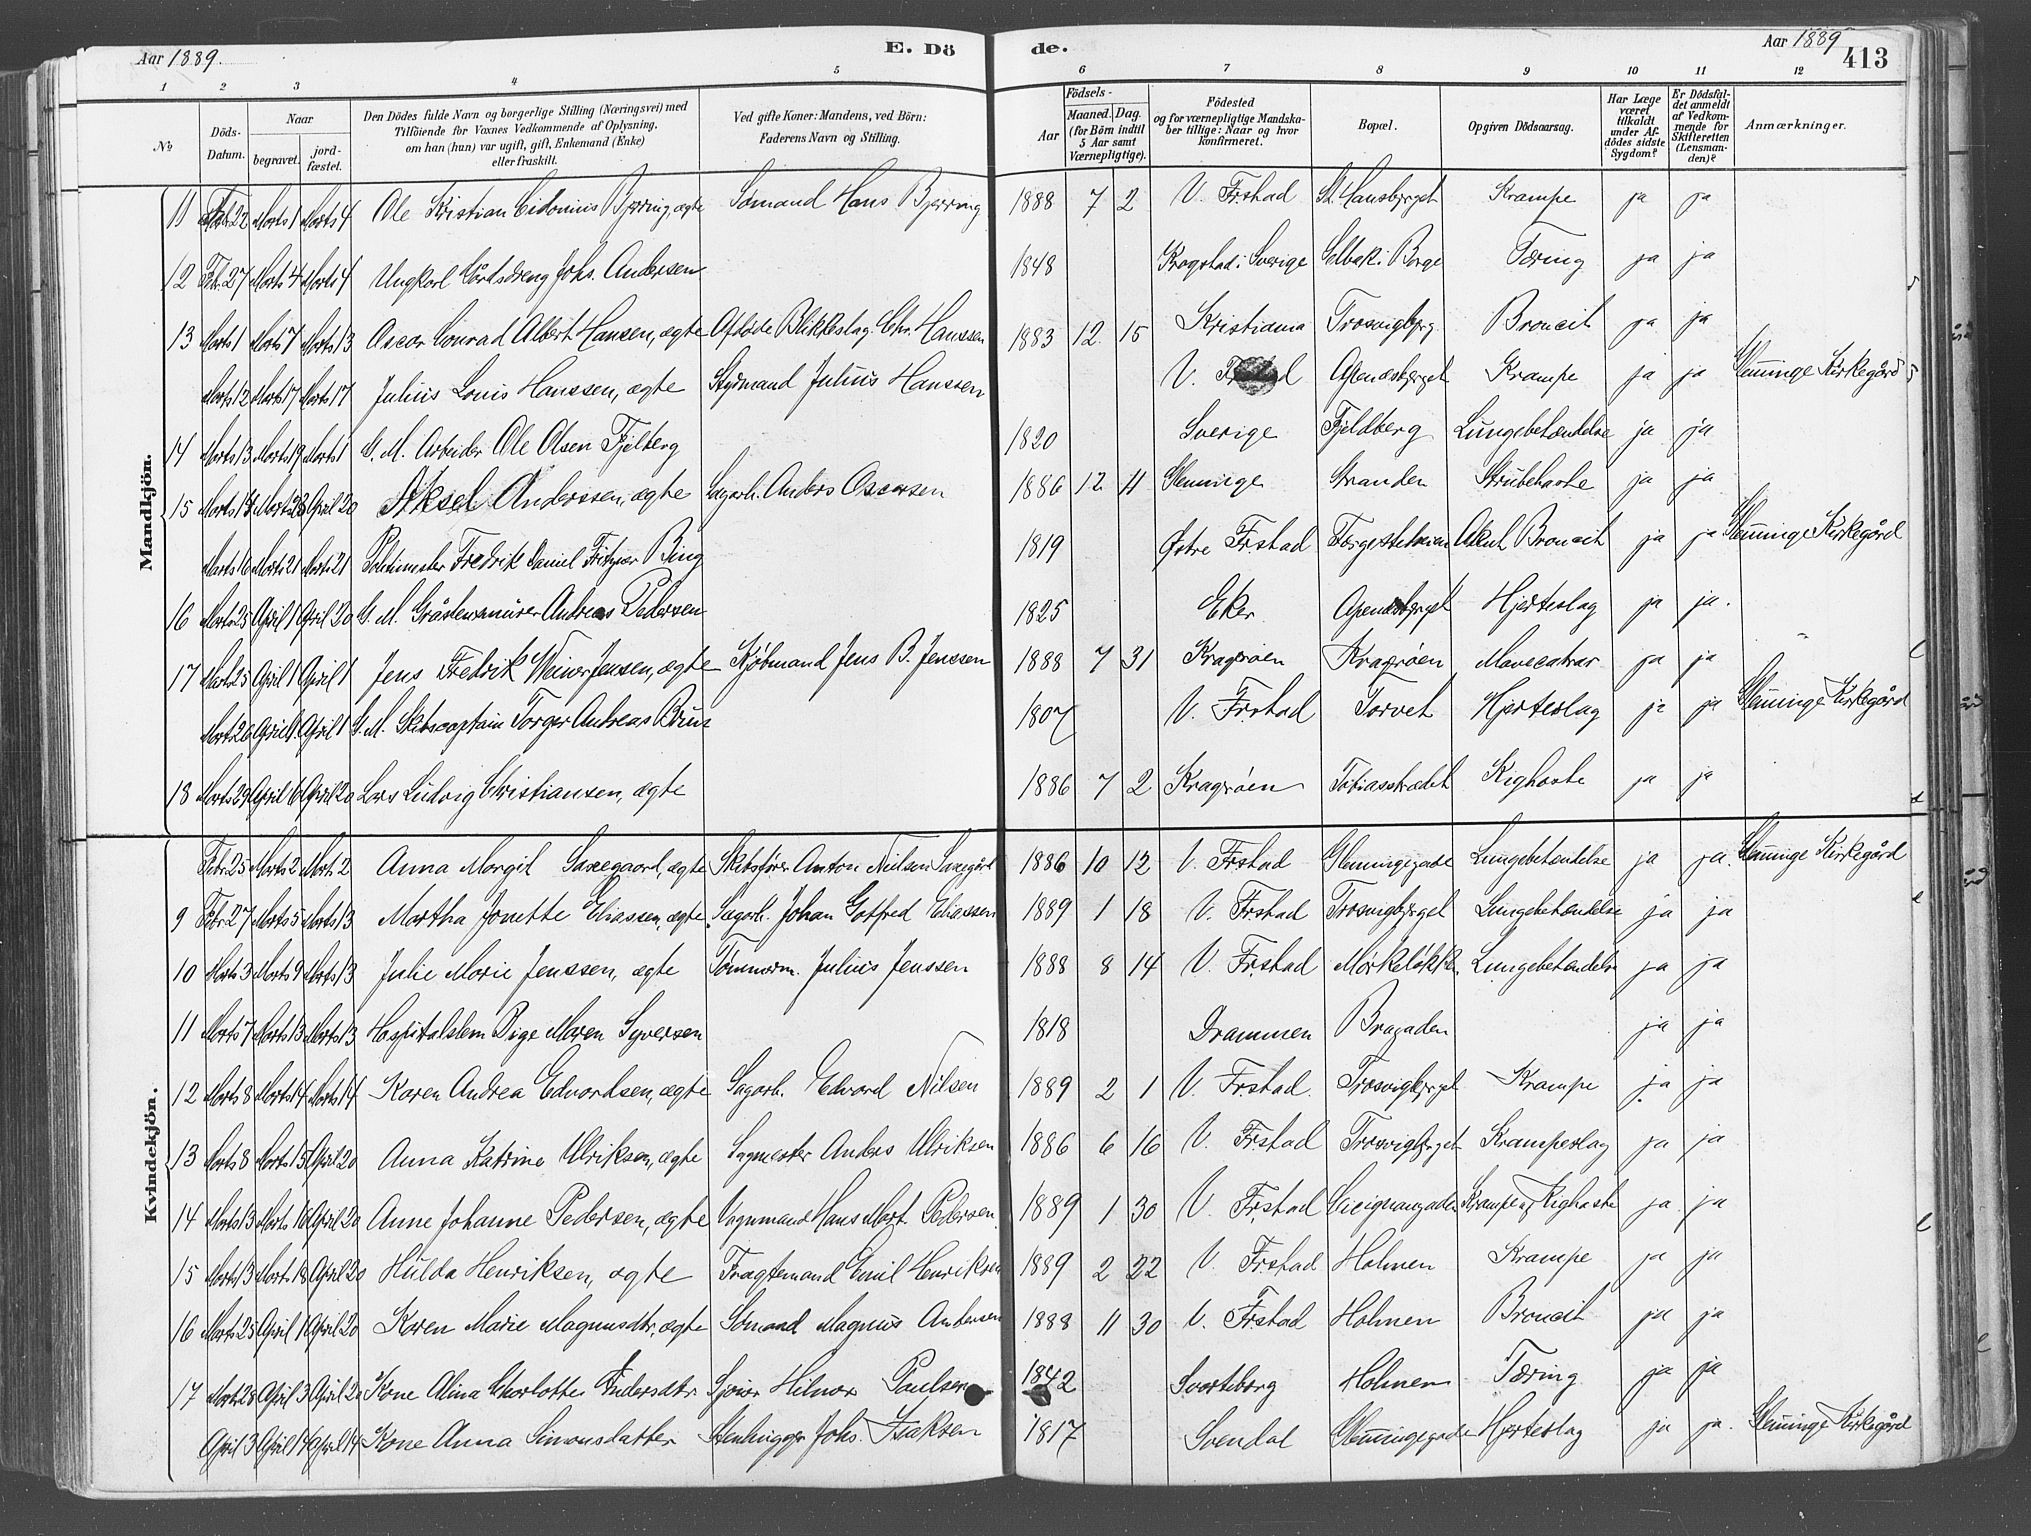 Aar 1889. E. Dö de. Aar 1889 413
1 2 3 4 5 6 7 8 9 10 11 12
№ Döds-Datum. Naar begravet. jord-fæstet. Den Dödes fulde Navn og borgerlige Stilling (Næringsvei) med Tilföiende for Voxnes Vedkommende af Oplysning, om han (hun) var ugift, gift, Enkemand (Enke) eller fraskilt. Ved gifte Koner: Mandens, ved Börn: Faderens Navn og Stilling. Födsels- Aar Maaned. Dag. (for Börn indtil 5 Aar samt Værnepligtige). Födested og for værnepligtige Mandska-ber tillige: Naar og hvor konfirmeret. Bopæl. Opgiven Dödsaarsag. Har Læge været tilkaldt under Af-dödes sidste Sygdom? Er Dödsfal-det anmeldt af Vedkom-mende for Skifteretten (Lensman-den)? Anmærkninger.
Mandkjön.
11 Febr. 22 Marts 1 Marts 4 Ole Kristian Cidonius Bjerring, ægte Sömand Hans Bjerring 1888 7 2 V. Frstad St. Hansbjerget Krampe ja ja
12 Feb. 27 Marts 4 Marts 4 Ungkarl Gårdsdreng Johs. Andersen 1848 Sverige Selbak i Borge Tæring ja ja
13 Marts 1 Marts 7 Marts 13 Oscar Conrad Albert Hansen, ægte Afdøde Blikkeslag. Chr. Hanssen 1883 12 15 Kristiania Trosvigbjrg Broncit ja ja
Marts 12 Marts 17 Marts 17 Julius Louis Hanssen, ægte Styrmand Julius Hanssen V. Frstad Apenæsbjerget Krampe ja ja Glemminge Kirkegård
14 Marts 13 Marts 19 Marts 1 G. M. Arbeider Ole Olsen Fjelberg 1820 Sverige Fjeldberg Lungebetændelse ja ja
15 Marts 14 Marts 23 April 20 Aksel Anderssen, ægte Sagarb. Anders Oscarsen 1886 12 11 Glemminge Stranden Strubehoste ja ja
Marts 16 Marts 21 Marts 21 Politimester Fredrik Daniel Fritzner Bing 1819 Østre Frstad Færgestedveien Akut Broncit ja ja Glemminge Kirkegård
16 Marts 25 April 1 April 20 G. M. Gråstensmurer Andreas Pedersen 1825 Eker Apenæsbjerget Hjerteslag ja ja.
17 Marts 25 April 1 April 1 Jens Fredrik Weiner Jensen, ægte Kjøbmand Jens B. Jenssen 1888 7 31 Kragerøen Kragerøen Mavecatrar ja ja
Marts 26 April 1 April 1 G. M. Skibscaptain Torger Andreas Brun 1807 V. Frstad Torvet Hjerteslag ja ja Glemminge Kirkegård
18 Marts 29 April 6 April 20 Lars Ludvig Christiansen, ægte 1886 7 2 Kragerøen Tobiasstrædet Kighoste ja ja
Kvindekjön.
Febr. 25 Marts 2 Marts 2 Anna Margit Saxegaard, ægte Skibsfører Anton Nielsen Saxegård 1886 10 12 V. Frstad Glemmingegade Lungebetændelse ja ja. Glemminge Kirkegård
9 Febr. 27 Marts 5 Marts 13 Martha Jonette Eliassen, ægte Sagarb. Johan Gotfred Eliassen 1889 1 18 V. Frstad Trosvigbjerget Lungebetændelse ja ja
10 Marts 3 Marts 9 Marts 13 Julie Marie Jenssen, ægte Tømmerm. Julius Jenssen 1888 8 14 V. Frstad Lungebetændelse ja ja
11 Marts 7 Marts 13 Marts 13 Hospitalslem Pige Maren Syversen 1818 Drammen Bragaden ja ja
12 Marts 8 Marts 14 Marts 14 Karen Andrea Edvardsen, ægte Sagarb. Edvard Nilsen 1889 2 1 V. Frstad. Trosvigbjerget Krampe ja ja
13 Marts 8 Marts 15 April 20 Anna Katrine Ulriksen, ægte Sagmester Anders Ulriksen 1886 6 16 V. Frstad Trosvigbjerget Krampeslag ja ja
14 Marts 13 Marts 16 April 20 Anne Johanne Pedersen, ægte Vognmand Hans Mart. Pedersen. 1889 1 30 V. Frstad Cicignongaden Krampe og Kighoste ja ja
15 Marts 13 Marts 18 April 20 Hulda Henriksen, ægte Fragtemand Emil Henriksen 1889 2 22 V. Frstad Holmen Krampe ja ja
16 Marts 25 April 1 April 20 Karen Marie Magnusdtr, ægte Sömand Magnus Andersen 1888 11 30 V. Frstad Holmen Broncit ja ja
17 Marts 28 April 3 April 20 Kone Alina Charlotte Andersdtr. Sjouer Hilmar Paulsen 1842 Svarteborg Holmen Tæring ja ja
April 3 April 14 April 14 Kone Anna Simonsdatter Stenhugger Johs. Isaksen 1817 Svendal Glemmingegade Hjerteslag ja ja. Glemminge Kirkegård